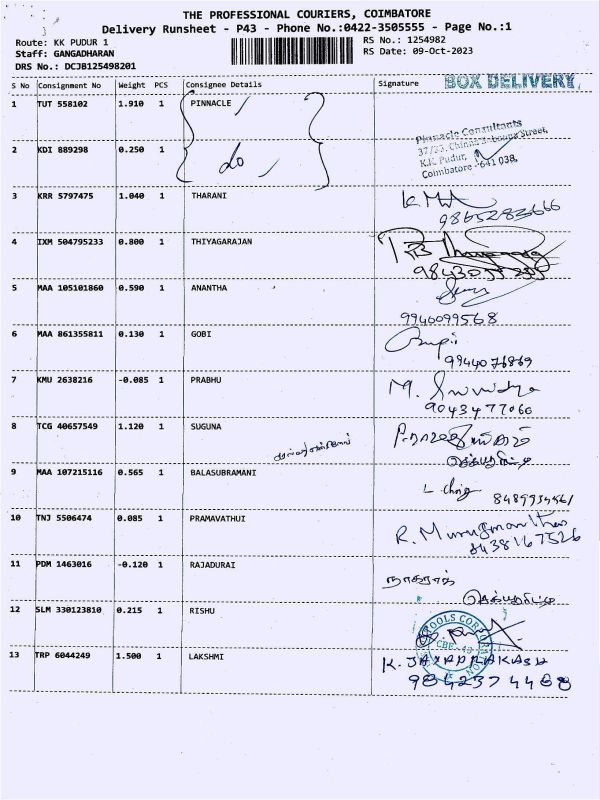 THE PROFESSIONAL COURIERS, COIMBATORE
Delivery Runsheet - P43 - Phone No.:0422-3505555 - Page No.:1
Route: KK PUDUR 1
RS No.: 1254982
Staff: GANGADHARAN
RS Date: 09-Oct-2023
DRS No.: DCJB125498201
BOX DELIVERY
S No Consignment No Weight PCS Consignee Details Signature
1 TUT 558102 1.910 1 PINNACLE
Pinnacle Consultants
37/33, Chinna Street
K.K. Pudur,
Coimbatore - 641 038.
2 KDI 889298 0.250 1 do
3 KRR 5797475 1.040 1 THARANI
9865283666
4 IXM 504795233 0.800 1 THIYAGARAJAN
5 MAA 105101860 0.590 1 ANANTHA
9940099568
6 MAA 861355811 0.130 1 GOBI
9944076869
7 KMU 2638216 -0.085 1 PRABHU
M. Srividya
9043477060
8 TCG 40657549 1.120 1 SUGUNA
9 MAA 107215116 0.565 1 BALASUBRAMANI
10 TNJ 5506474 0.085 1 PRAMAVATHUI
8438167526
11 PDM 1463016 -0.120 1 RAJADURAI
நாகராஜ்
12 SLM 330123810 0.215 1 RISHU
TOOLS CORPORATION
CBE-43
13 TRP 6044249 1.500 1 LAKSHMI
K. JAYAPRAKASH
9842374488